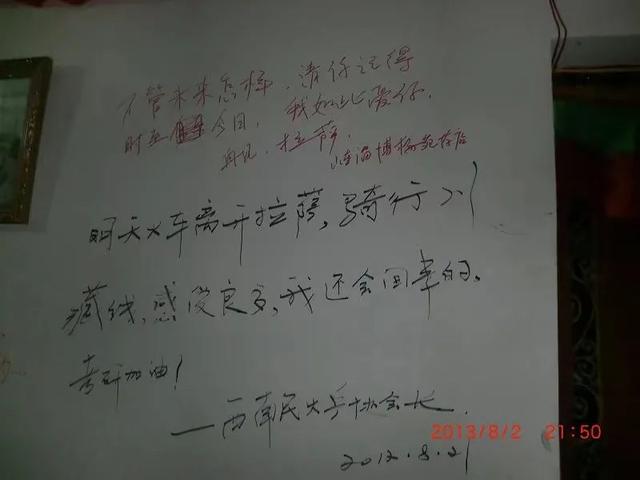 不管未来怎样，请你记得
时至今日，我如此爱你，
再见，拉萨，
明天火车离开拉萨，骑行川
藏线，感受良多，我还会回来的。
考研加油！
——西南民大乒协会长
2012.8.21
2013/8/2 21:50